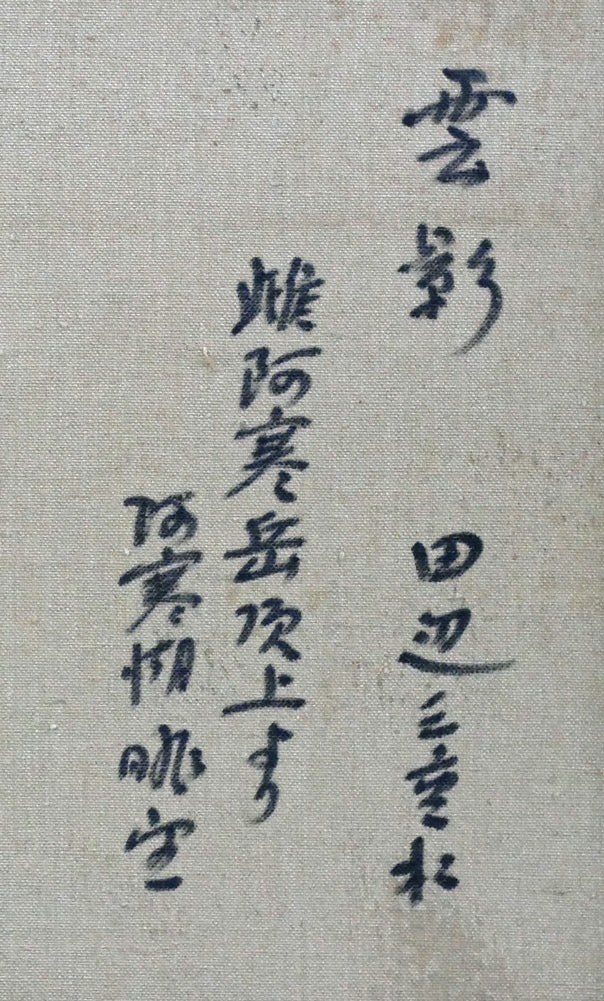 雲影 田辺三重松
雌阿寒岳頂上より
阿寒湖眺望